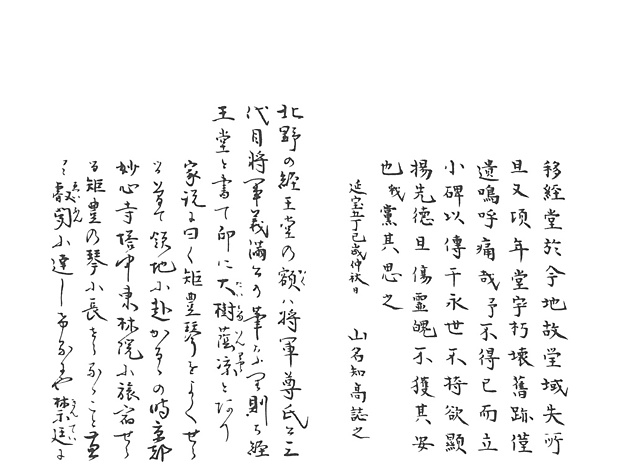 移経堂於今地故堂域失所
且又頃年堂宇朽壊舊跡僅
遺嗚呼痛哉予不得已而立
小碑以傳于永世不特欲顯
揚先徳且傷霊魄不獲其安
也我黨其思之
延宝五丁巳歳仲秋日　山名知高誌之
北野の経王堂の額ハ将軍尊氏公三
代目将軍義満公の筆なり則ち経
王堂と書て印に大樹蔭凉とあり
家説に曰く矩豊琴をよくせら
る嘗て領地に赴かるゝの時京都
妙心寺塔中東林院に旅宿せら
る矩豊の琴に長せらるゝこと
叡聞に達し